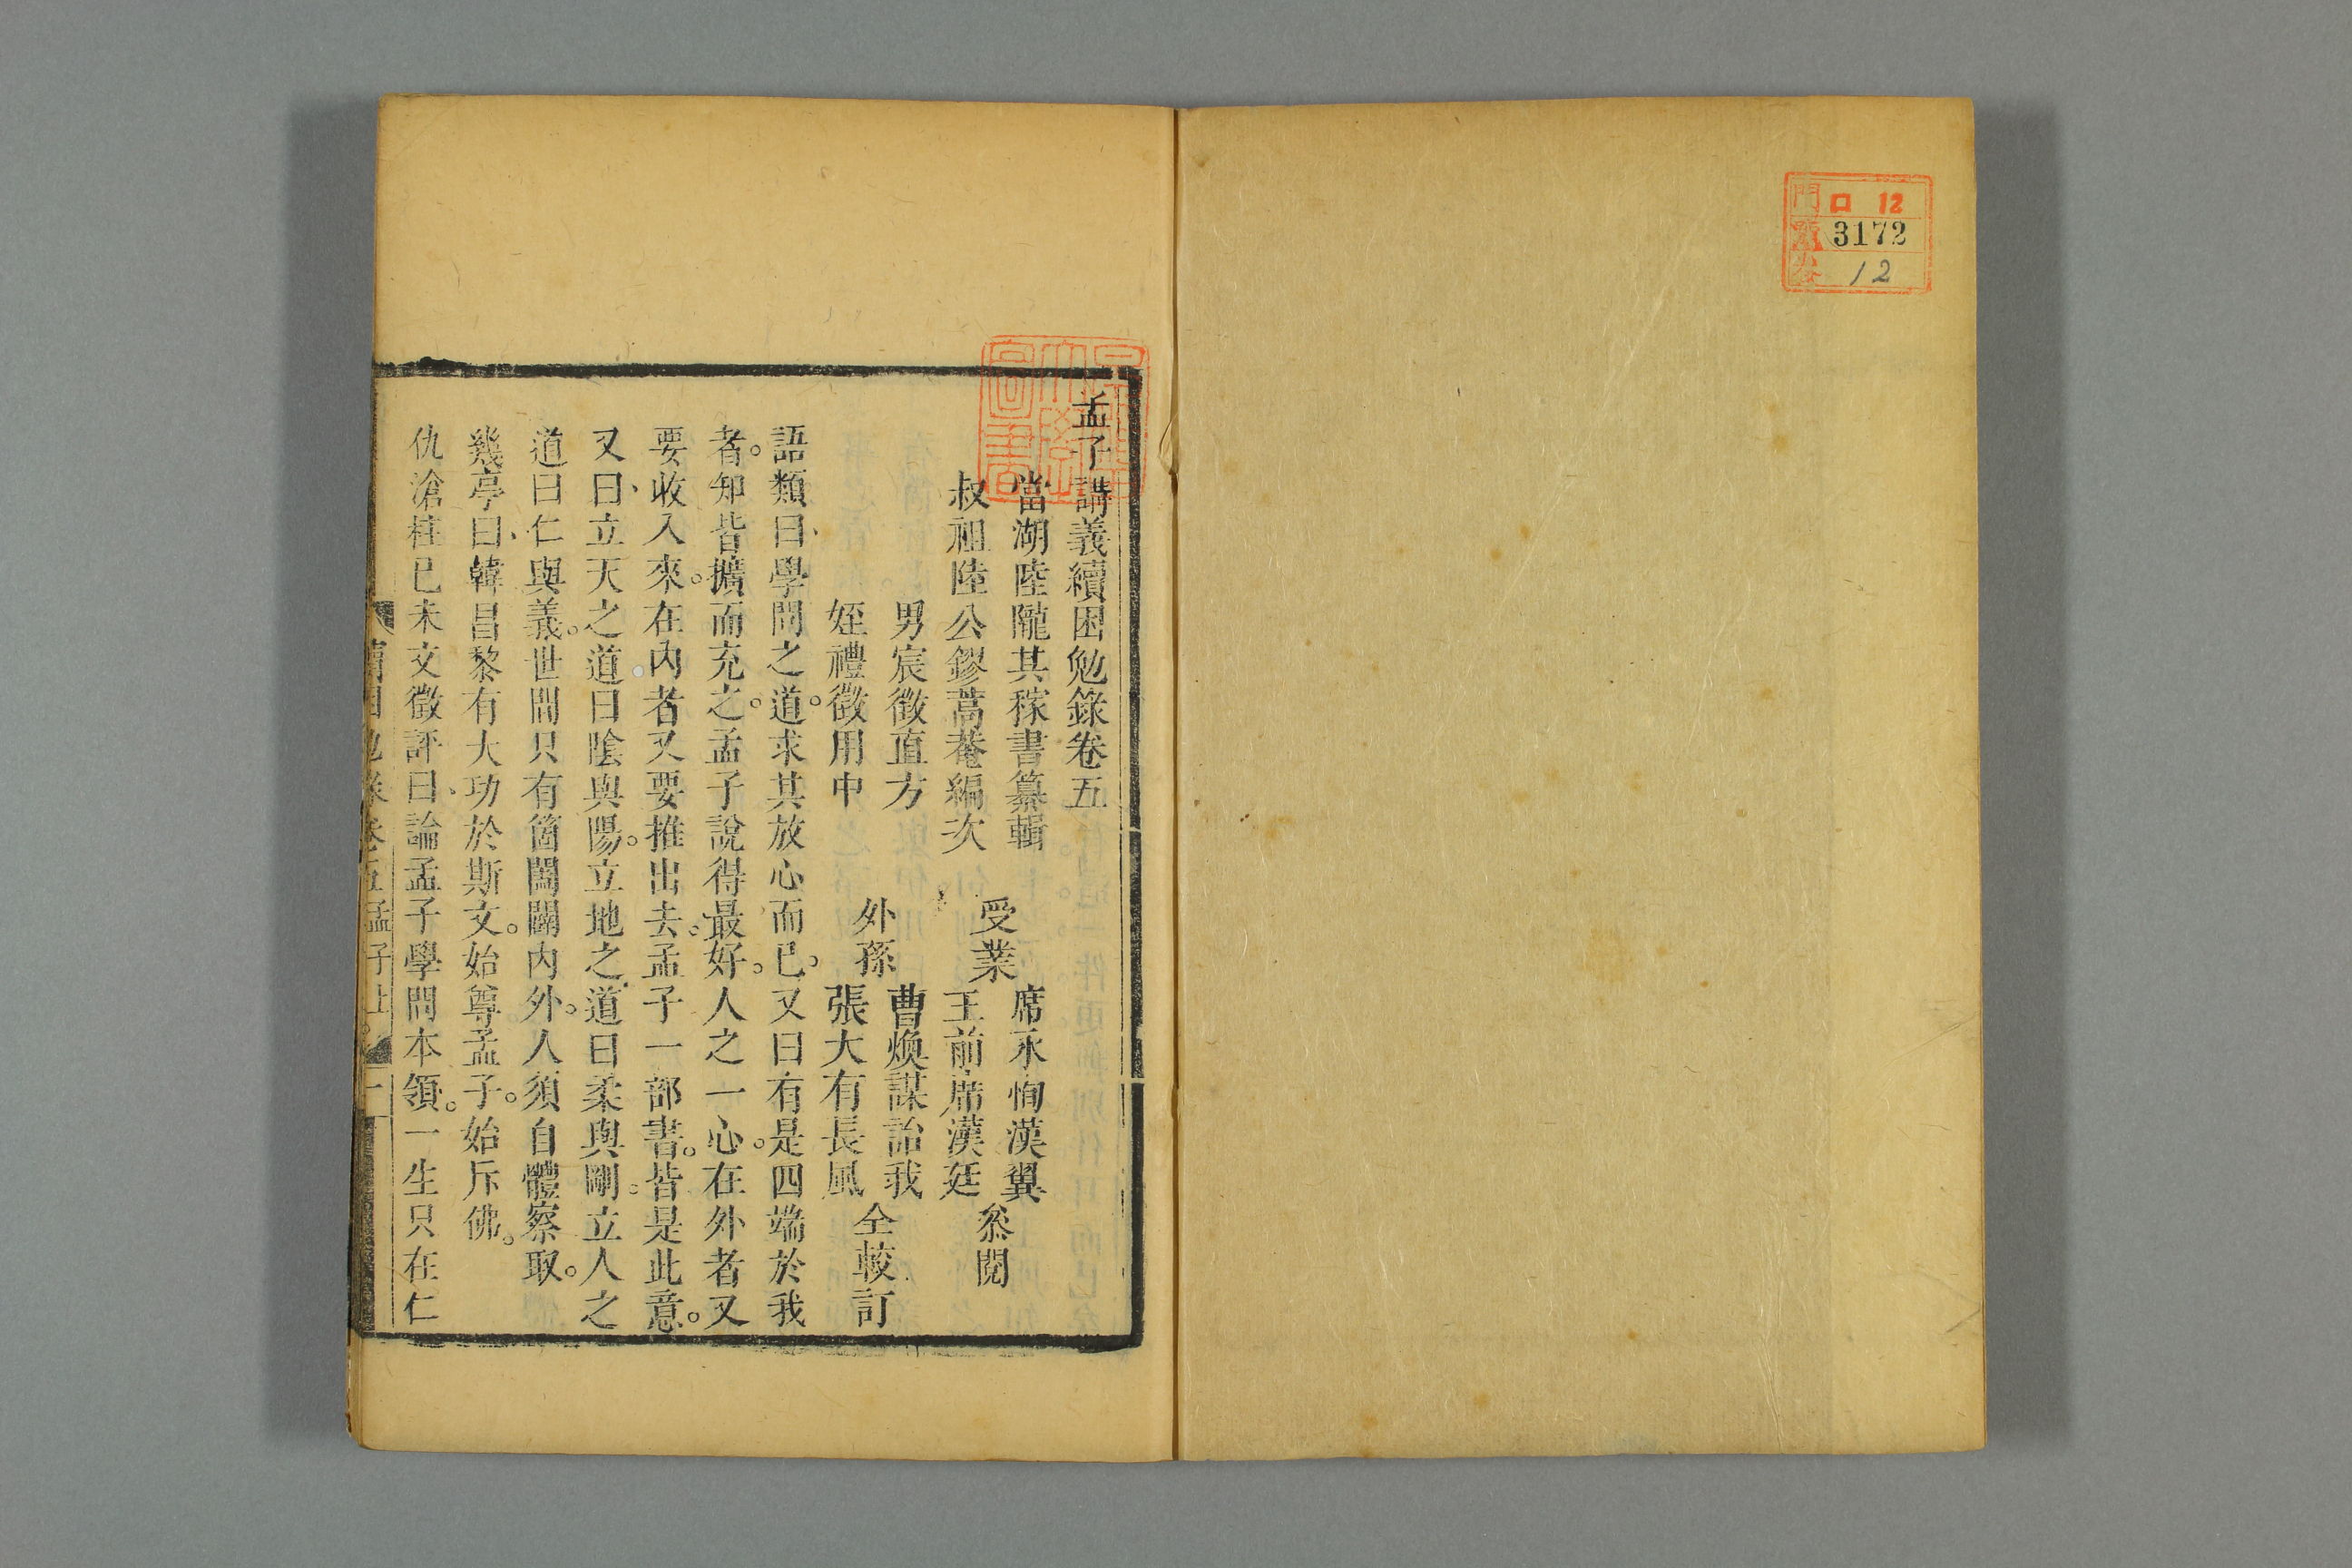 門 口 12
號 3172
卷 12
孟子講義續困勉錄卷五
當湖陸隴其稼書纂輯
叔祖陸公鏐蒿菴編次
男宸徵直方
姪禮徵用中
受業
席永恂漢翼
王前席漢廷
叅閱
外孫
曹煥謀詒我
張大有長風
仝較訂
語類曰、學問之道。求其放心而已。又曰有是四端於我
者。知皆擴而充之。孟子說得最好。人之一心。在外者又
要收入來。在內者又要推出去。孟子一部書。皆是此意。
又曰、立天之道曰陰與陽。立地之道曰柔與剛。立人之
道曰仁與義。世間只有箇闔闢內外。人須自體察取。
幾亭曰、韓昌黎有大功於斯文。始尊孟子。始斥佛。
仇滄柱已未文徵評曰、論孟子學問本領。一生只在仁
續困勉錄卷五孟子上 一